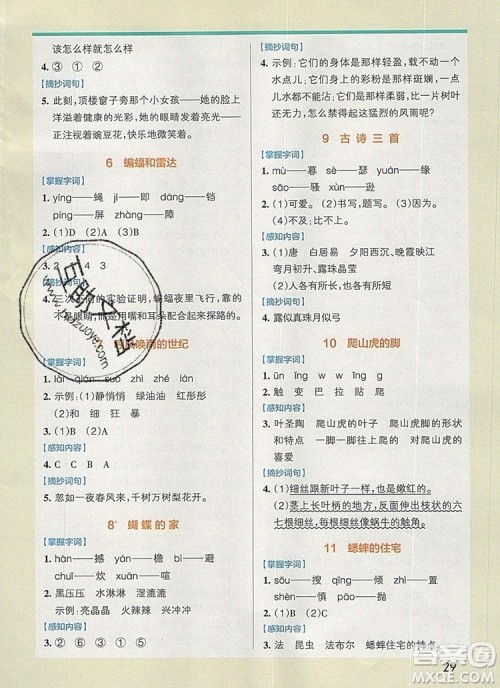 该怎么样就怎么样
4. ③ ① ②
【摘抄词句】
5. 此刻，顶楼窗子旁那个小女孩——她的脸上
洋溢着健康的光彩，她的眼睛发出感谢的光芒
——正注视着豌豆花，快乐地微笑着。
6 蝙蝠和雷达
【掌握字词】
1. yíng——蝇 jí——即 dāng——铛
píng——屏 zhàng——障
2. (1)D (2)A (3)B
【感知内容】
3. 2 4 3
【摘抄词句】
4. 三次不同的实验证明，蝙蝠夜里飞行，靠的
不是眼睛，而是用嘴和耳朵配合起来探路的。
唤雨的世纪
【掌握字词】
1. lài qián suó jié luò
2. 示例：(1)静悄悄 绿油油 红彤彤
(2)和 细 狂 暴
【感知内容】
4. C C B A
【摘抄词句】
5. 忽如一夜春风来，千树万树梨花开。
8* 蝴蝶的家
【掌握字词】
1. hàn——撼 yàn——雁 duàn——缎
chuī——炊 yì——异
2. 黑压压 水淋淋 绿漉漉
示例：亮晶晶 火辣辣 兴冲冲
【感知内容】
3. ② ⑥ ① ⑤
【摘抄词句】
4. 示例：它们的身体是那样轻盈，载不动一个
水点儿；它们身上的彩粉是那样斑斓，一点
儿水都不能沾；它们是那样柔弱，比一片树叶
还无力，怎么禁得起这猛烈的风雨呢？
9 古诗三首
【掌握字词】
1. mù——暮 sè——瑟 yuán——缘
sāo——骚 xùn——逊
【感知内容】
2. (1)唐 白居易 夕阳西沉、晚霞映江
弯月初升、露珠晶莹
(2)人有所长，各有所短
【摘抄词句】
4. 露似真珠月似弓
10 爬山虎的脚
【掌握字词】
2. 触 变 巴 拉 逐 痕
【感知内容】
3. 叶圣陶 爬山虎的叶子 爬山虎脚的形状
和特点 爬山虎是如何爬的
【摘抄词句】
4. (1)细丝跟新叶子一样，也是嫩红的。
(2)茎上长叶柄的地方，反面伸出枝状的六
七根细丝，每根细丝像蜗牛的触角。
11 蟋蟀的住宅
【掌握字词】
1. sōu——搜 qīng——倾 shèn——慎
zé——择 zhuān——专
3. (1)B (2)A
【感知内容】
4. 法 昆虫 法布尔 蟋蟀住宅的特点
29
答案圈
MXQE.COM